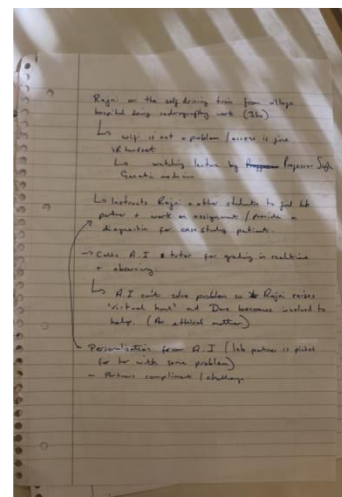 Rajai on the self driving train from village
hospital doing radiography work
↳ wifi is not a problem / access is fine
VR headset
↳ watching lecture by Professor
Genetic medicine
↳ Instructs Rajai + other students to find lab
partner + work on assignment / provide a
diagnostic for case study patient.
→ Calls A.I tutor for grading in realtime
+ observing
↳ A.I can't solve problem so Rajai raises
'virtual hand' and Dave becomes involved to
help. (An ethical matter)
Personalisation from A.I (lab partner is picked
for her with same problem)
- Partners compliment / challenge